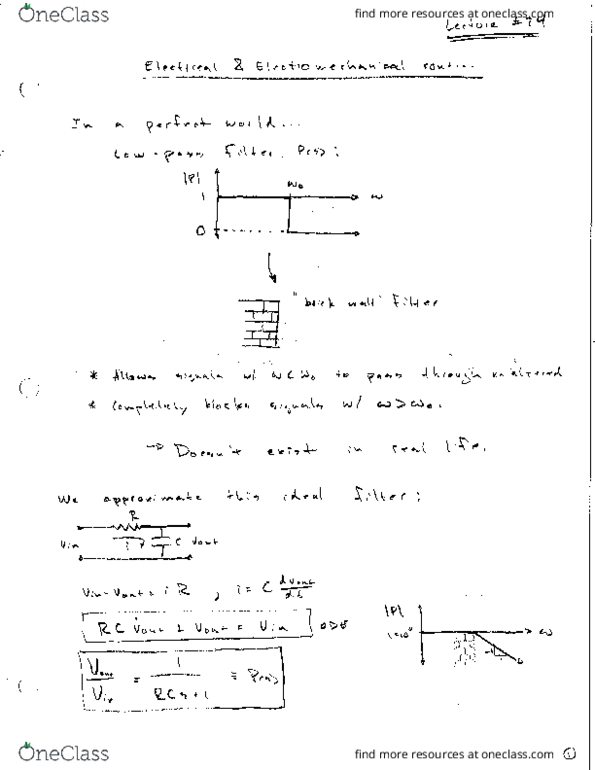 OneClass
find more resources at oneclass.com
Lecture #
Electrical & Electromechanical
In a perfect world...
Low-pass Filter, P(s):
|P|
ω₀
1
ω
0
"brick wall" filter
* Allows signals w/ ω<ω₀ to pass through unaltered
* Completely blocks signals w/ ω>ω₀.
→ Doesn't exist in real life.
We approximate this ideal filter:
R
Vin
i
C
Vout
Vin-Vout = iR , i = C dVout/dt
RC V̇out + Vout = Vin
ODE
|P|
1=10⁰
ω
-1
Vout/Vin = 1/(RCs+1) ≡ P(s)
OneClass
find more resources at oneclass.com
1